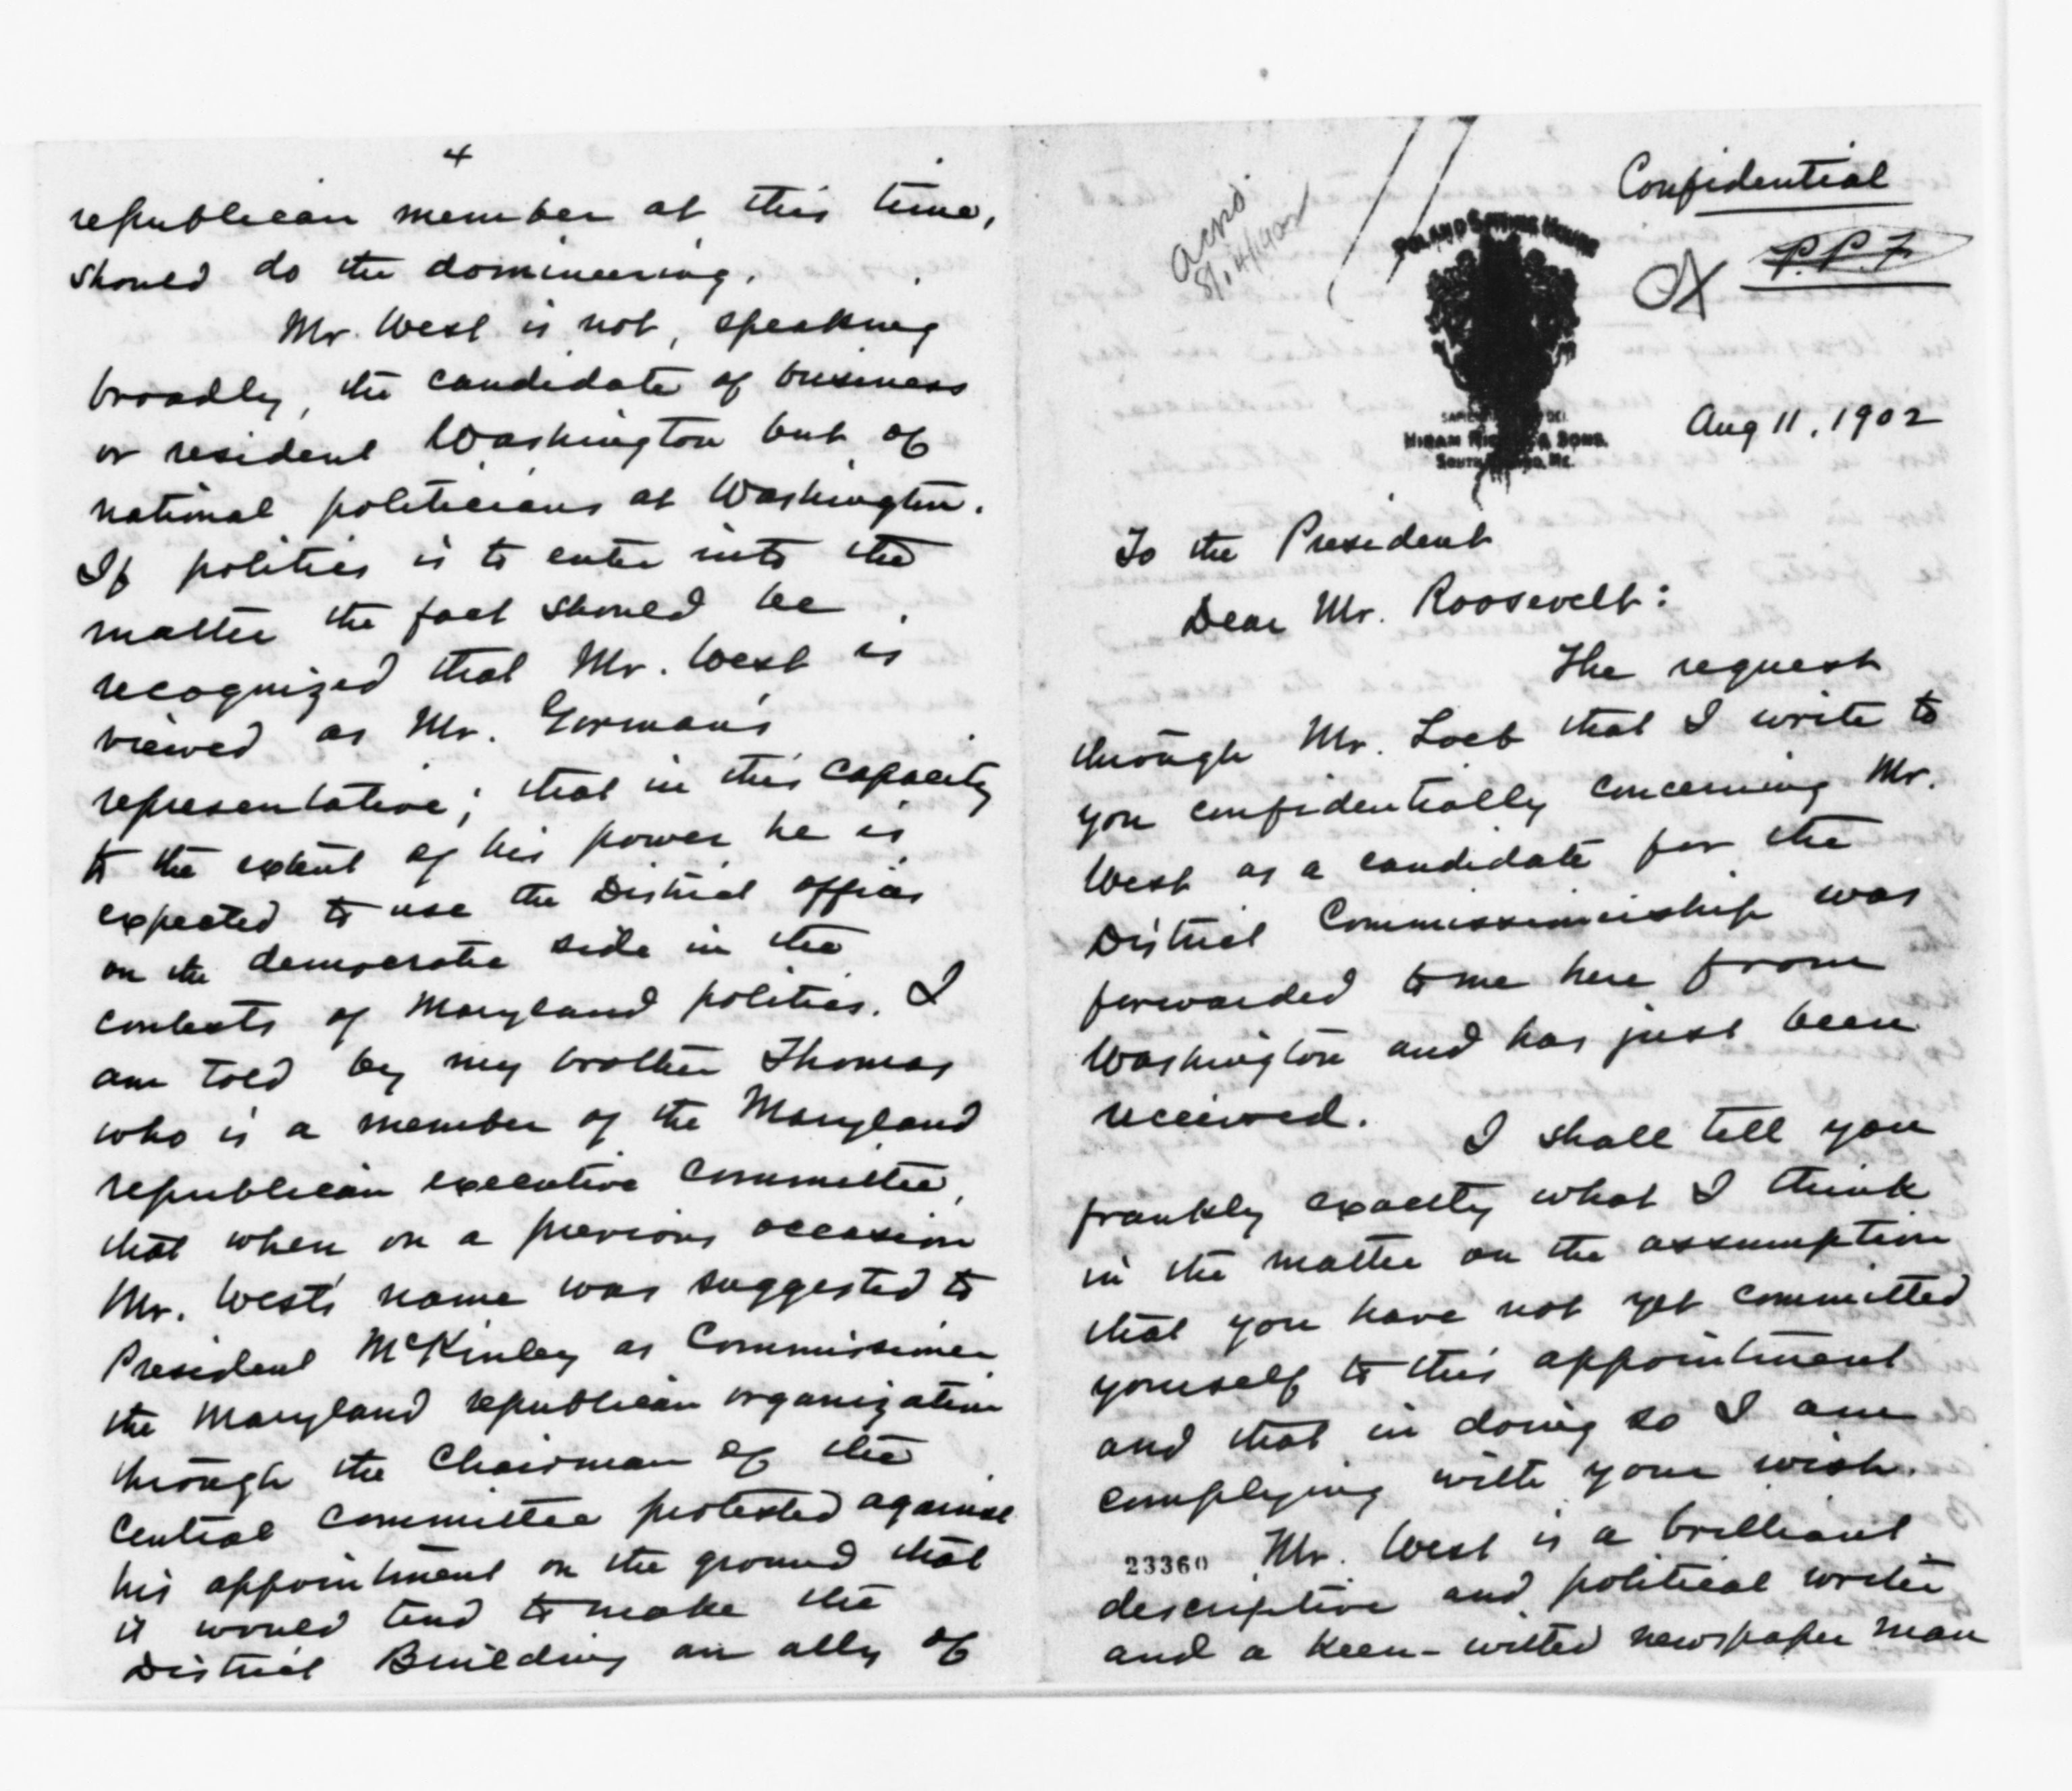 4
republican member at this time,
should do the domineering.
Mr. West is not, speaking
broadly, the candidate of business
or resident Washington but of
national politicians at Washington.
If politics is to enter into the
matter the fact should be
recognized that Mr. West is
viewed as Mr. Gorman's
representative; that in this capacity
to the extent of his power he is
expected to use the District offices
on the democratic side in the
contests of Maryland politics. I
am told by my brother Thomas
who is a member of the Maryland
republican executive committee,
that when on a previous occasion
Mr. West's name was suggested to
President McKinley as Commissioner
the Maryland republican organization
through the Chairman of the
Central Committee protested against
his appointment on the ground that
it would tend to make the
District Building an ally of
Confidential
Ackd.
8/14/1902
P.P.F.
POLAND SPRING HOUSE
HIRAM & SONS.
SOUTH ME.
Aug 11, 1902
To the President
Dear Mr. Roosevelt:
The request
through Mr. Loeb that I write to
you confidentially concerning Mr.
West as a candidate for the
District Commissionership was
forwarded to me here from
Washington and has just been
received.
I shall tell you
frankly exactly what I think
in the matter on the assumption
that you have not yet committed
yourself to this appointment
and that in doing so I am
complying with your wish.
23360 Mr. West is a brilliant
descriptive and political writer
and a keen-witted newspaper man